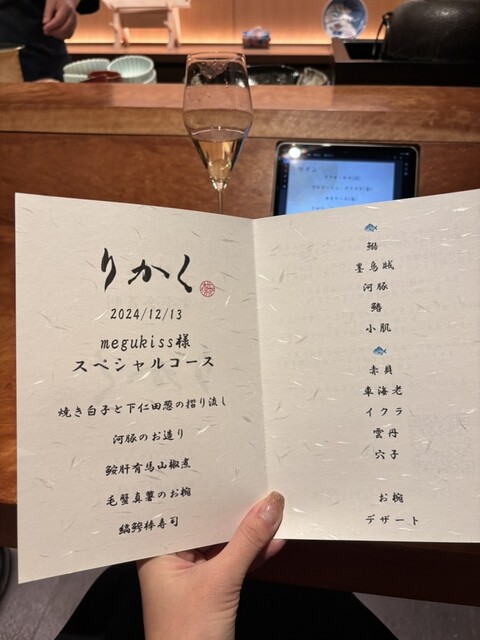 りかく
2024/12/13
megukiss様
スペシャルコース
焼き白子と下仁田葱の摺り流し
河豚のお造り
鮟肝有馬山椒煮
毛蟹真薯のお椀
縞鯵棒寿司
墨烏賊
河豚
小肌
赤貝
車海老
イクラ
雲丹
穴子
お椀
デザート